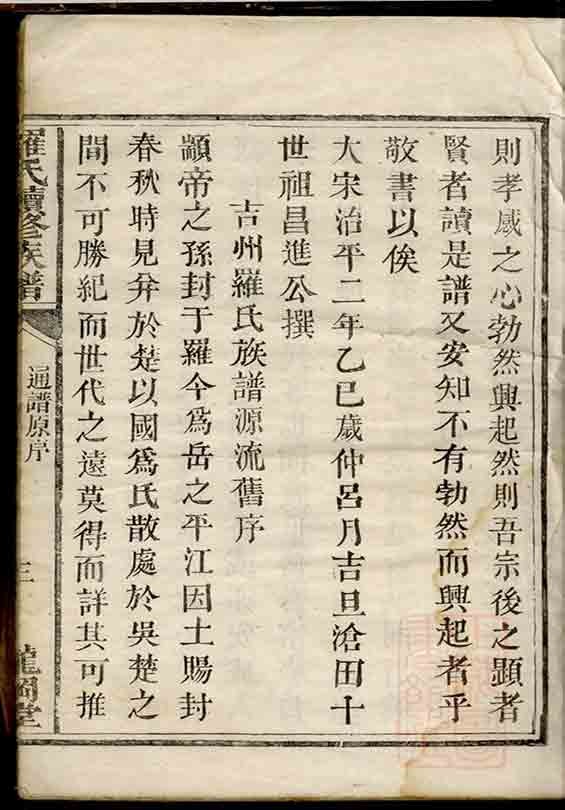 則孝感之心勃然興起然則吾宗後之顯者
賢者讀是譜又安知不有勃然而興起者乎
敬書以俟
大宋治平二年乙巳歲仲呂月吉旦滄田十
世祖昌進公撰
吉州羅氏族譜源流舊序
顓帝之孫封于羅今爲岳之平江因土賜封
春秋時見弁於楚以國爲氏散處於吳楚之
間不可勝紀而世代之遠莫得而詳其可推
羅氏續修族譜
通譜原序
三